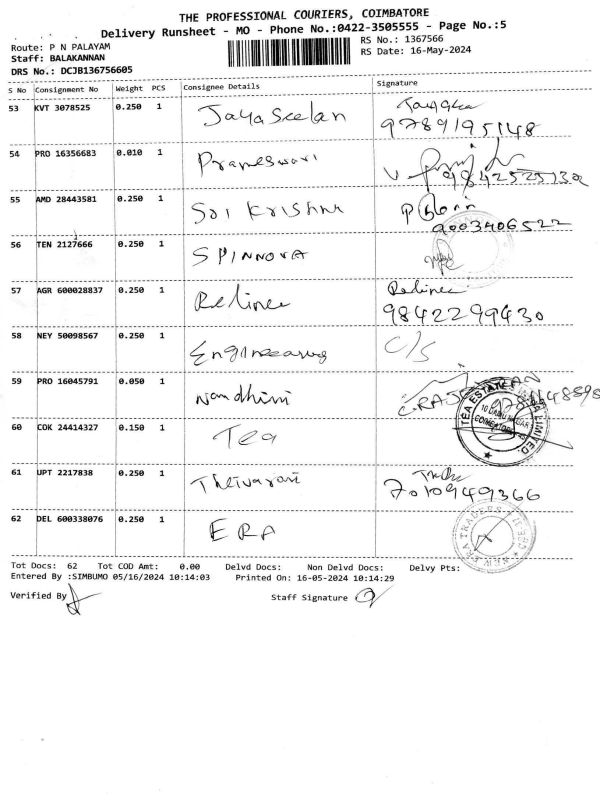 THE PROFESSIONAL COURIERS, COIMBATORE
Delivery Runsheet - MO - Phone No.:0422-3505555 - Page No.:5
Route: P N PALAYAM
RS No.: 1367566
Staff: BALAKANNAN
RS Date: 16-May-2024
DRS No.: DCJB136756605
S No Consignment No Weight PCS Consignee Details Signature
53 KVT 3078525 0.250 1 Jayaseelan
9789195148
54 PRO 16356683 0.010 1 Prameswari
9842525132
55 AMD 28443581 0.250 1 Sri Krishna
9003406522
56 TEN 2127666 0.250 1 SPINNOVA
57 AGR 600028837 0.250 1 Reliance Reliance
9842299430
58 NEY 50098567 0.250 1 Engineering C/S
59 PRO 16045791 0.050 1 Nandhini
C.RAJENDRAN
60 COK 24414327 0.150 1 Tea
TEA ESTATES INDIA LIMITED
COIMBATORE
61 UPT 2217838 0.250 1
7010949366
62 DEL 600338076 0.250 1 ERA
NEW ERA TRADERS
Tot Docs: 62 Tot COD Amt: 0.00 Delvd Docs: Non Delvd Docs: Delvy Pts:
Entered By :SIMBUMO 05/16/2024 10:14:03 Printed On: 16-05-2024 10:14:29
Verified By Staff Signature